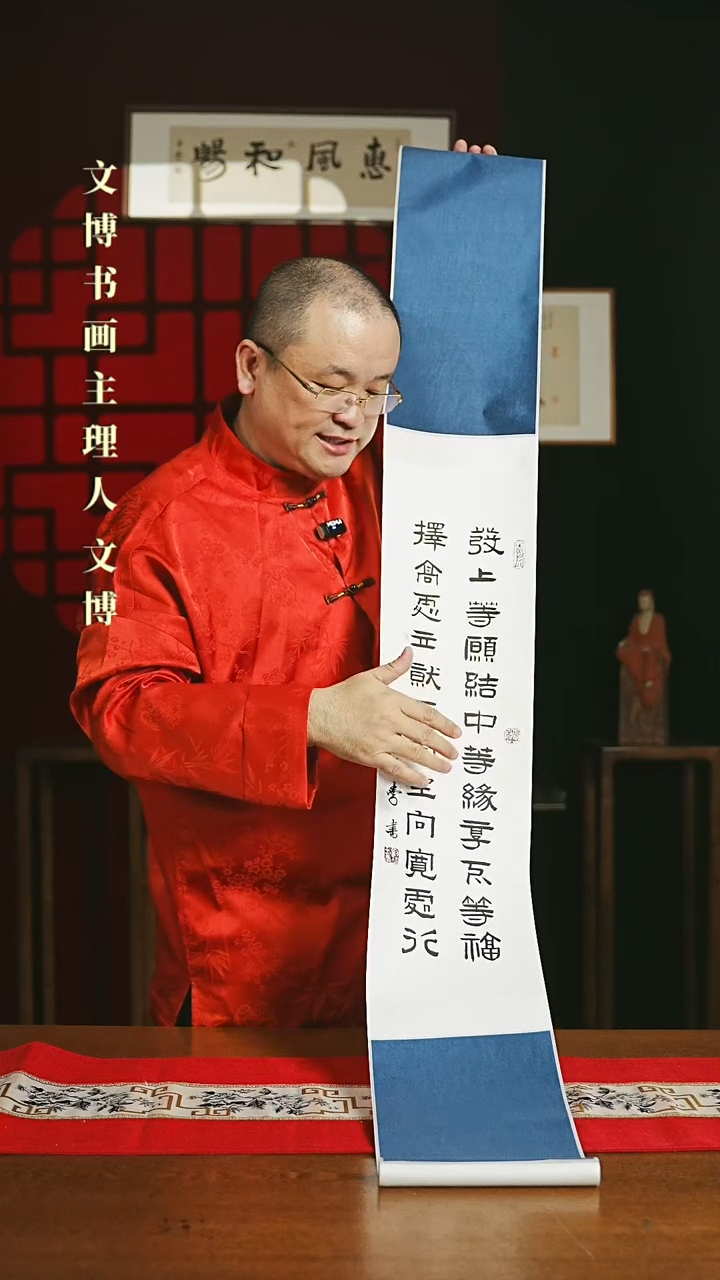 惠風和暢
文博书画主理人文博
發上等願結中等緣享下等福
擇高處立就坐向寬處行